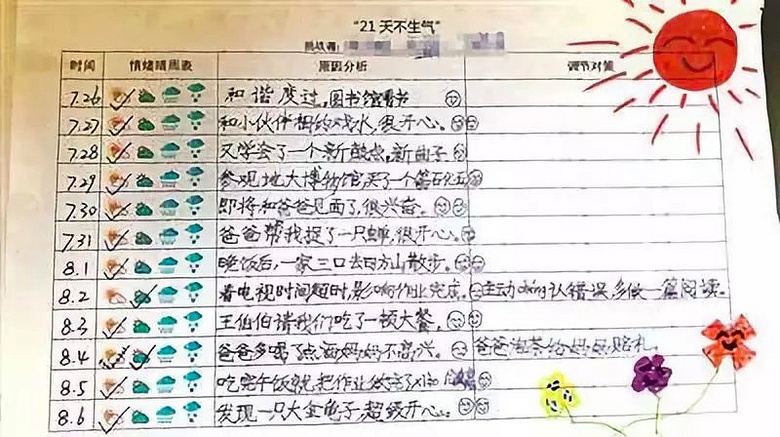 "21天不生气"
挑战者:
时间 情绪晴雨表 原因分析 调节对策
7.26 和谐度过,图书馆看书
7.27 和小伙伴相约戏水,很开心。
7.28 又学会了一个新鼓点,新曲子
7.29 参观地大博物馆买了一个
7.30 即将和爸爸见面了,很兴奋。
7.31 爸爸帮我捉了一只蝉,很开心。
8.1 晚饭后,一家三口去四方山散步。
8.2 看电视时间超时,影响作业完成。 主动 认错误,多做一篇阅读。
8.3 王伯伯请我们吃了一顿大餐,
8.4 爸爸多喝了点酒妈妈不高兴。 爸爸泡茶给妈妈赔礼。
8.5 吃完午饭就把作业
8.6 发现一只大金龟子,超级开心。